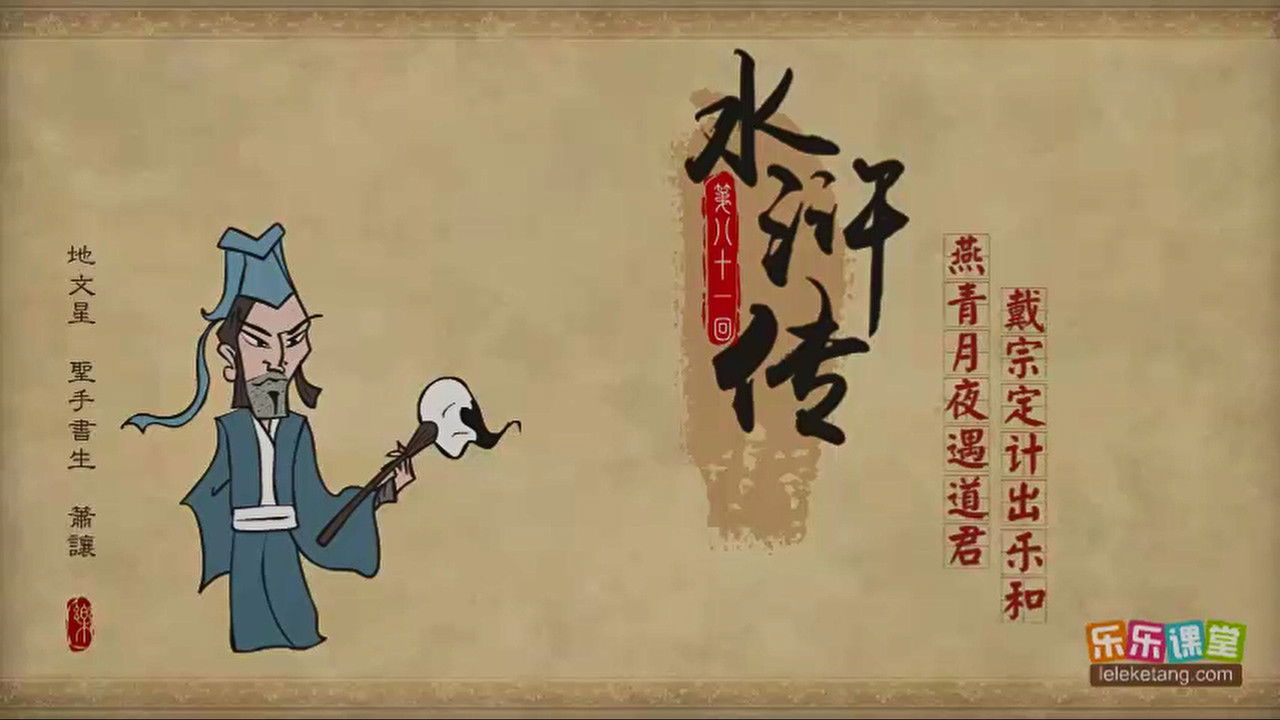 水浒传
第八十一回
燕青月夜遇道君
戴宗定计出乐和
地文星 聖手書生 蕭讓
樂
乐乐课堂
leleketang.com